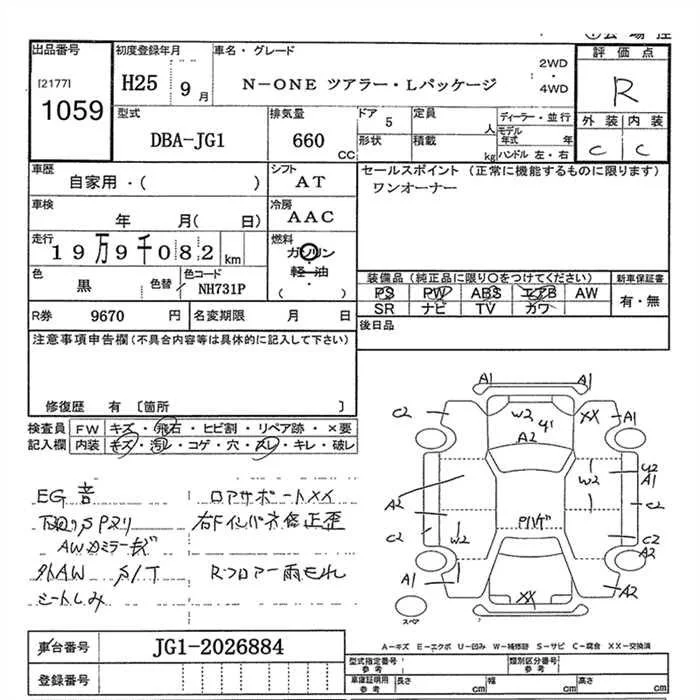 出品番号
[2177]
1059
初度登録年月
H25 9 月
車名・グレード
N-ONE ツアラー・Lパッケージ
2WD
・
4WD
評価点
R
外装 内装
C C
型式
DBA-JG1
排気量
660 CC
ドア 5
定員 人
形状
積載 kg
ディーラー・並行
モデル年式 年
ハンドル 左・右
車歴
自家用・( )
シフト
AT
セールスポイント (正常に機能するものに限ります)
ワンオーナー
車検
年 月( 日)
冷房
AAC
走行
19万9千082 km
燃料
ガソリン
軽・油
( )
色
黒
色替
色コード
NH731P
装備品(純正品に限り○をつけてください)
新車保証書
PS PW ABS エアB AW
SR ナビ TV カワ
有・無
R券 9670 円
名変期限 月 日
後日品
注意事項申告欄(不具合内容等は具体的に記入して下さい)
修復歴 有 〔箇所 〕
検査員 FW キズ・飛石・ヒビ割・リペア跡・×要
記入欄 内装 キズ・汚レ・コゲ・穴・スレ・キレ・破レ
EG 音
ロアサポートXX
AWカミラーキズ
外AW S/T
Rフロアー雨もれ
シートしみ
A1 A1
C2 W2 XX A1
A2
W2 A1
A2 W2 C2
C2 W2 C2
A2
A1 XX A2
スペア
車台番号 JG1-2026884
登録番号
A-キズ E-エクボ U-凹み W-補修跡 S-サビ C-腐食 XX-交換済
型式指定番号
参考
類別区分番号
参考
車庫証明用
参考
長さ cm 幅 cm 高さ cm